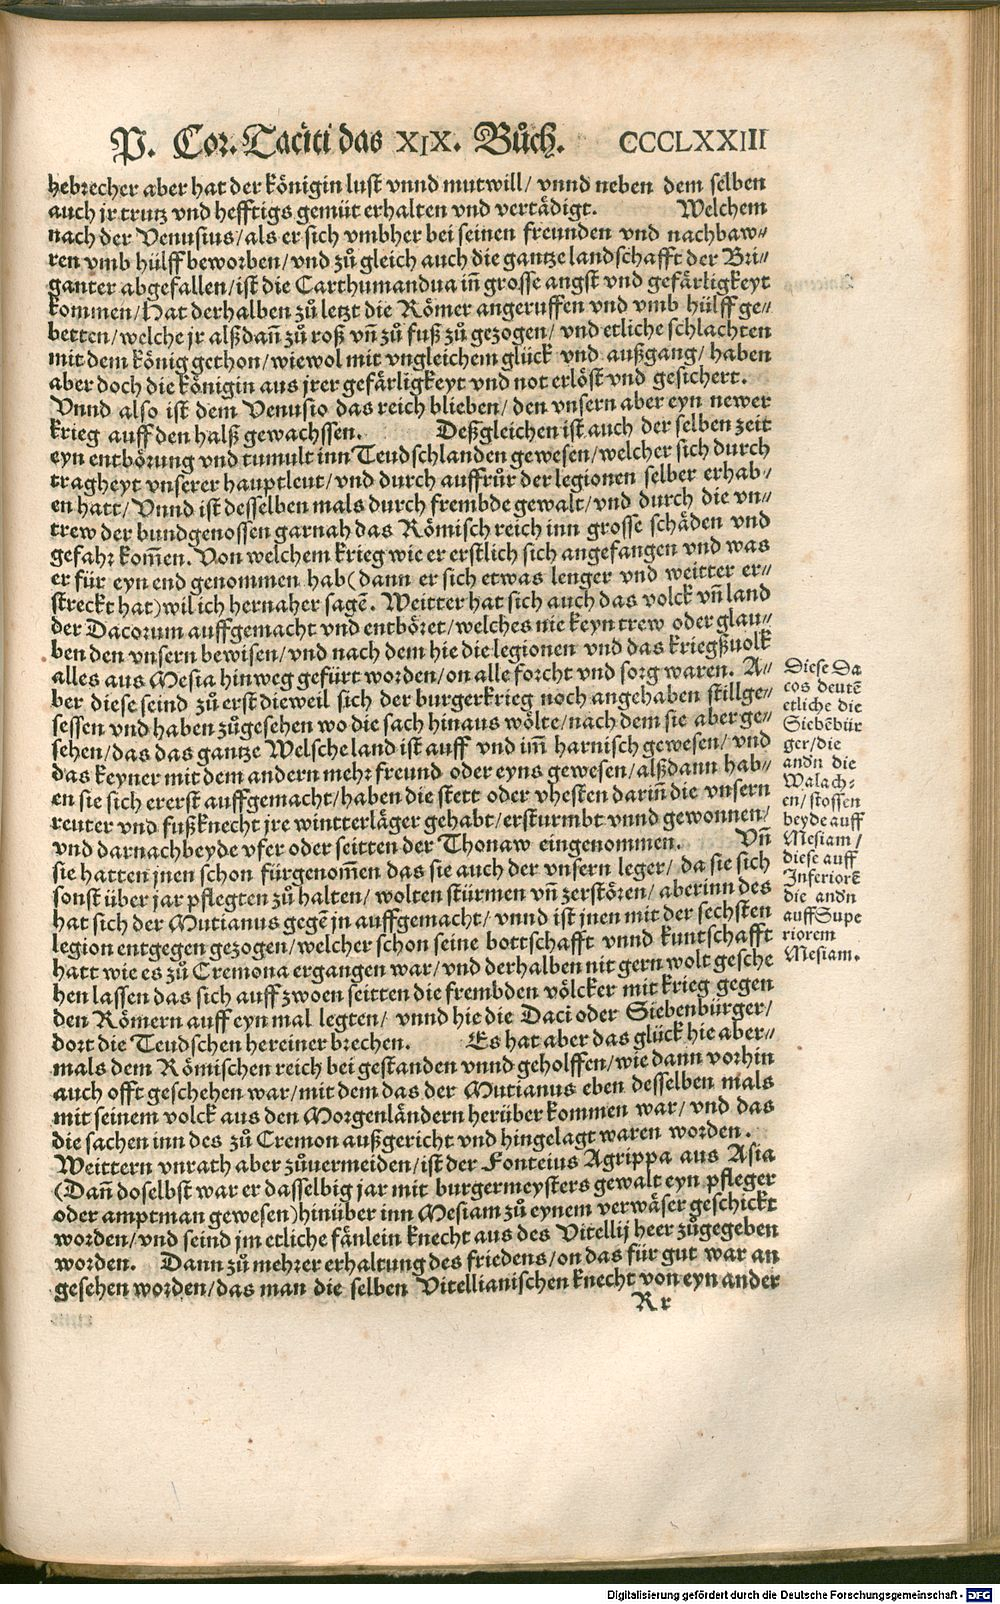 P. Cor. Taciti das XIX. Bůch. CCCLXXIII
hebrecher aber hat der königin lust vnnd mutwill/ vnnd neben dem selben
auch jr trutz vnd hefftigs gemüt erhalten vnd vertädigt. Welchem
nach der Venusius/als er sich vmbher bei seinen freunden vnd nachbaw⸗
ren vmb hülff beworben/vnd zů gleich auch die gantze landschafft der Bri⸗
ganter abgefallen/ist die Carthumandua iñ grosse angst vnd gefärligkeyt
kommen/Hat derhalben zů letzt die Römer angeruffen vnd vmb hülff ge⸗
betten/welche jr alßdañ zů roß vñ zů fuß zů gezogen/ vnd etliche schlachten
mit dem könig gethon/wiewol mit vngleichem glück vnd außgang/ haben
aber doch die königin aus jrer gefärligkeyt vnd not erlöst vnd gesichert.
Vnnd also ist dem Venusio das reich blieben/ den vnsern aber eyn newer
krieg auff den halß gewachssen. Deßgleichen ist auch der selben zeit
eyn entbörung vnd tumult inn Teudschlanden gewesen/welcher sich durch
tragheyt vnserer hauptleut/ vnd durch auffrůr der legionen selber erhab⸗
en hatt/ Vnnd ist desselben mals durch frembde gewalt/ vnd durch die vn⸗
trew der bundgenossen garnah das Römisch reich inn grosse schäden vnd
gefahr kom̃en. Von welchem krieg wie er erstlich sich angefangen vnd was
er für eyn end genommen hab(dann er sich etwas lenger vnd weitter er⸗
streckt hat)wil ich hernaher sagẽ. Weitter hat sich auch das volck vñ land
der Dacorum auffgemacht vnd entböret/welches nie keyn trew oder glau⸗
ben den vnsern bewisen/vnd nach dem hie die legionen vnd das kriegßuolk
alles aus Mesia hinweg gefürt worden/on alle forcht vnd sorg waren. A⸗
ber diese seind zů erst dieweil sich der burgerkrieg noch angehaben stillge⸗
sessen vnd haben zůgesehen wo die sach hinaus wölte/nach dem sie aber ge⸗
sehen/das das gantze Welsche land ist auff vnd im̃ harnisch gewesen/ vnd
das keyner mit dem andern mehr freund oder eyns gewesen/alßdann hab⸗
en sie sich ererst auffgemacht/haben die stett oder vhesten dariñ die vnsern
reuter vnd fußknecht jre wintterläger gehabt/ersturmbt vnnd gewonnen/
vnd darnach beyde vfer oder seitten der Thonaw eingenommen. Vñ
sie hatten jnen schon fürgenom̃en das sie auch der vnsern leger/ da sie sich
sonst über jar pflegten zů halten/ wolten stürmen vñ zerstören/ aber inn des
hat sich der Mutianus gegẽ jn auffgemacht/ vnnd ist jnen mit der sechsten
legion entgegen gezogen/welcher schon seine bottschafft vnnd kuntschafft
hatt wie es zů Cremona ergangen war/vnd derhalben nit gern wolt gesche
hen lassen das sich auff zwoen seitten die frembden völcker mit krieg gegen
den Römern auff eyn mal legten/ vnnd hie die Daci oder Siebenbürger/
dort die Teudschen hereiner brechen. Es hat aber das glück hie aber⸗
mals dem Römischen reich bei gestanden vnnd geholffen/wie dann vorhin
auch offt geschehen war/mit dem das der Mutianus eben desselben mals
mit seinem volck aus den Morgenländern herüber kommen war/ vnd das
die sachen inn des zů Cremon außgericht vnd hingelagt waren worden.
Weittern vnrath aber zůuermeiden/ist der Fonteius Agrippa aus Asia
(Dañ doselbst war er dasselbig jar mit burgermeysters gewalt eyn pfleger
oder amptman gewesen)hinüber inn Mesiam zů eynem verwäser geschickt
worden/vnd seind jm etliche fänlein knecht aus des Vitellij heer zůgegeben
worden. Dann zů mehrer erhaltung des friedens/on das für gut war an
gesehen worden/das man die selben Vitellianischen knecht von eyn ander
Rr
Diese Da
cos deutẽ
etliche die
Siebẽbür
ger/die
andn die
Walach⸗
en/ stossen
beyde auff
Mesiam/
diese auff
Inferiorẽ
die andn
auff Supe
riorem
Mesiam.
Digitalisierung gefördert durch die Deutsche Forschungsgemeinschaft - DFG